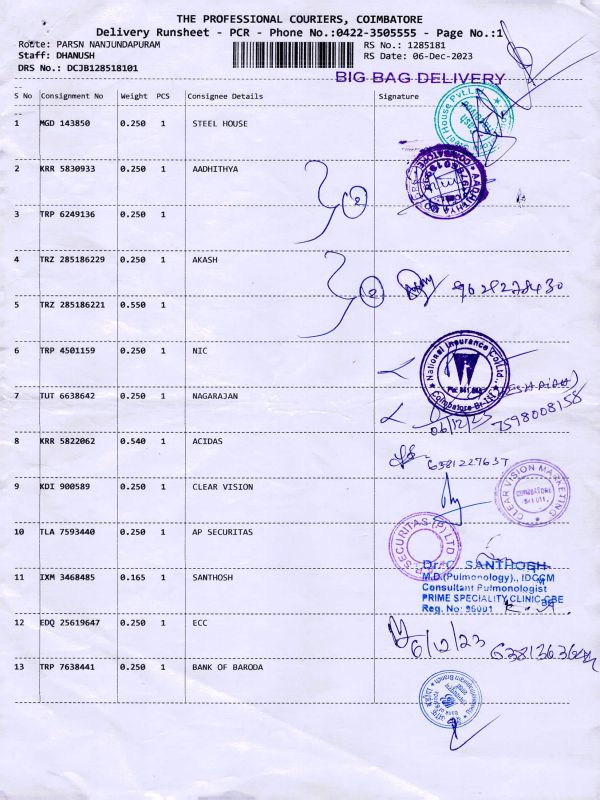 THE PROFESSIONAL COURIERS, COIMBATORE
Delivery Runsheet - PCR - Phone No.:0422-3505555 - Page No.:1
Route: PARSN NANJUNDAPURAM
RS No.: 1285181
Staff: DHANUSH
RS Date: 06-Dec-2023
DRS No.: DCJB128518101
BIG BAG DELIVERY
S No Consignment No Weight PCS Consignee Details Signature
1 MGD 143850 0.250 1 STEEL HOUSE
2 KRR 5830933 0.250 1 AADHITHYA
3 TRP 6249136 0.250 1
4 TRZ 285186229 0.250 1 AKASH
9629278430
5 TRZ 285186221 0.550 1
6 TRP 4501159 0.250 1 NIC
National Insurance Co. Ltd.
7 TUT 6638642 0.250 1 NAGARAJAN
06/12/23 7598008158
8 KRR 5822062 0.540 1 ACIDAS
6381227637
9 KDI 900589 0.250 1 CLEAR VISION
CLEAR VISION MARKETING
COIMBATORE
10 TLA 7593440 0.250 1 AP SECURITAS
SECURITAS (P) LTD
Dr. C. SANTHOSH
11 IXM 3468485 0.165 1 SANTHOSH
M.D.(Pulmonology)., IDCCM
Consultant Pulmonologist
PRIME SPECIALITY CLINIC CBE
Reg. No: 96001
12 EDQ 25619647 0.250 1 ECC
6/12/23
13 TRP 7638441 0.250 1 BANK OF BARODA